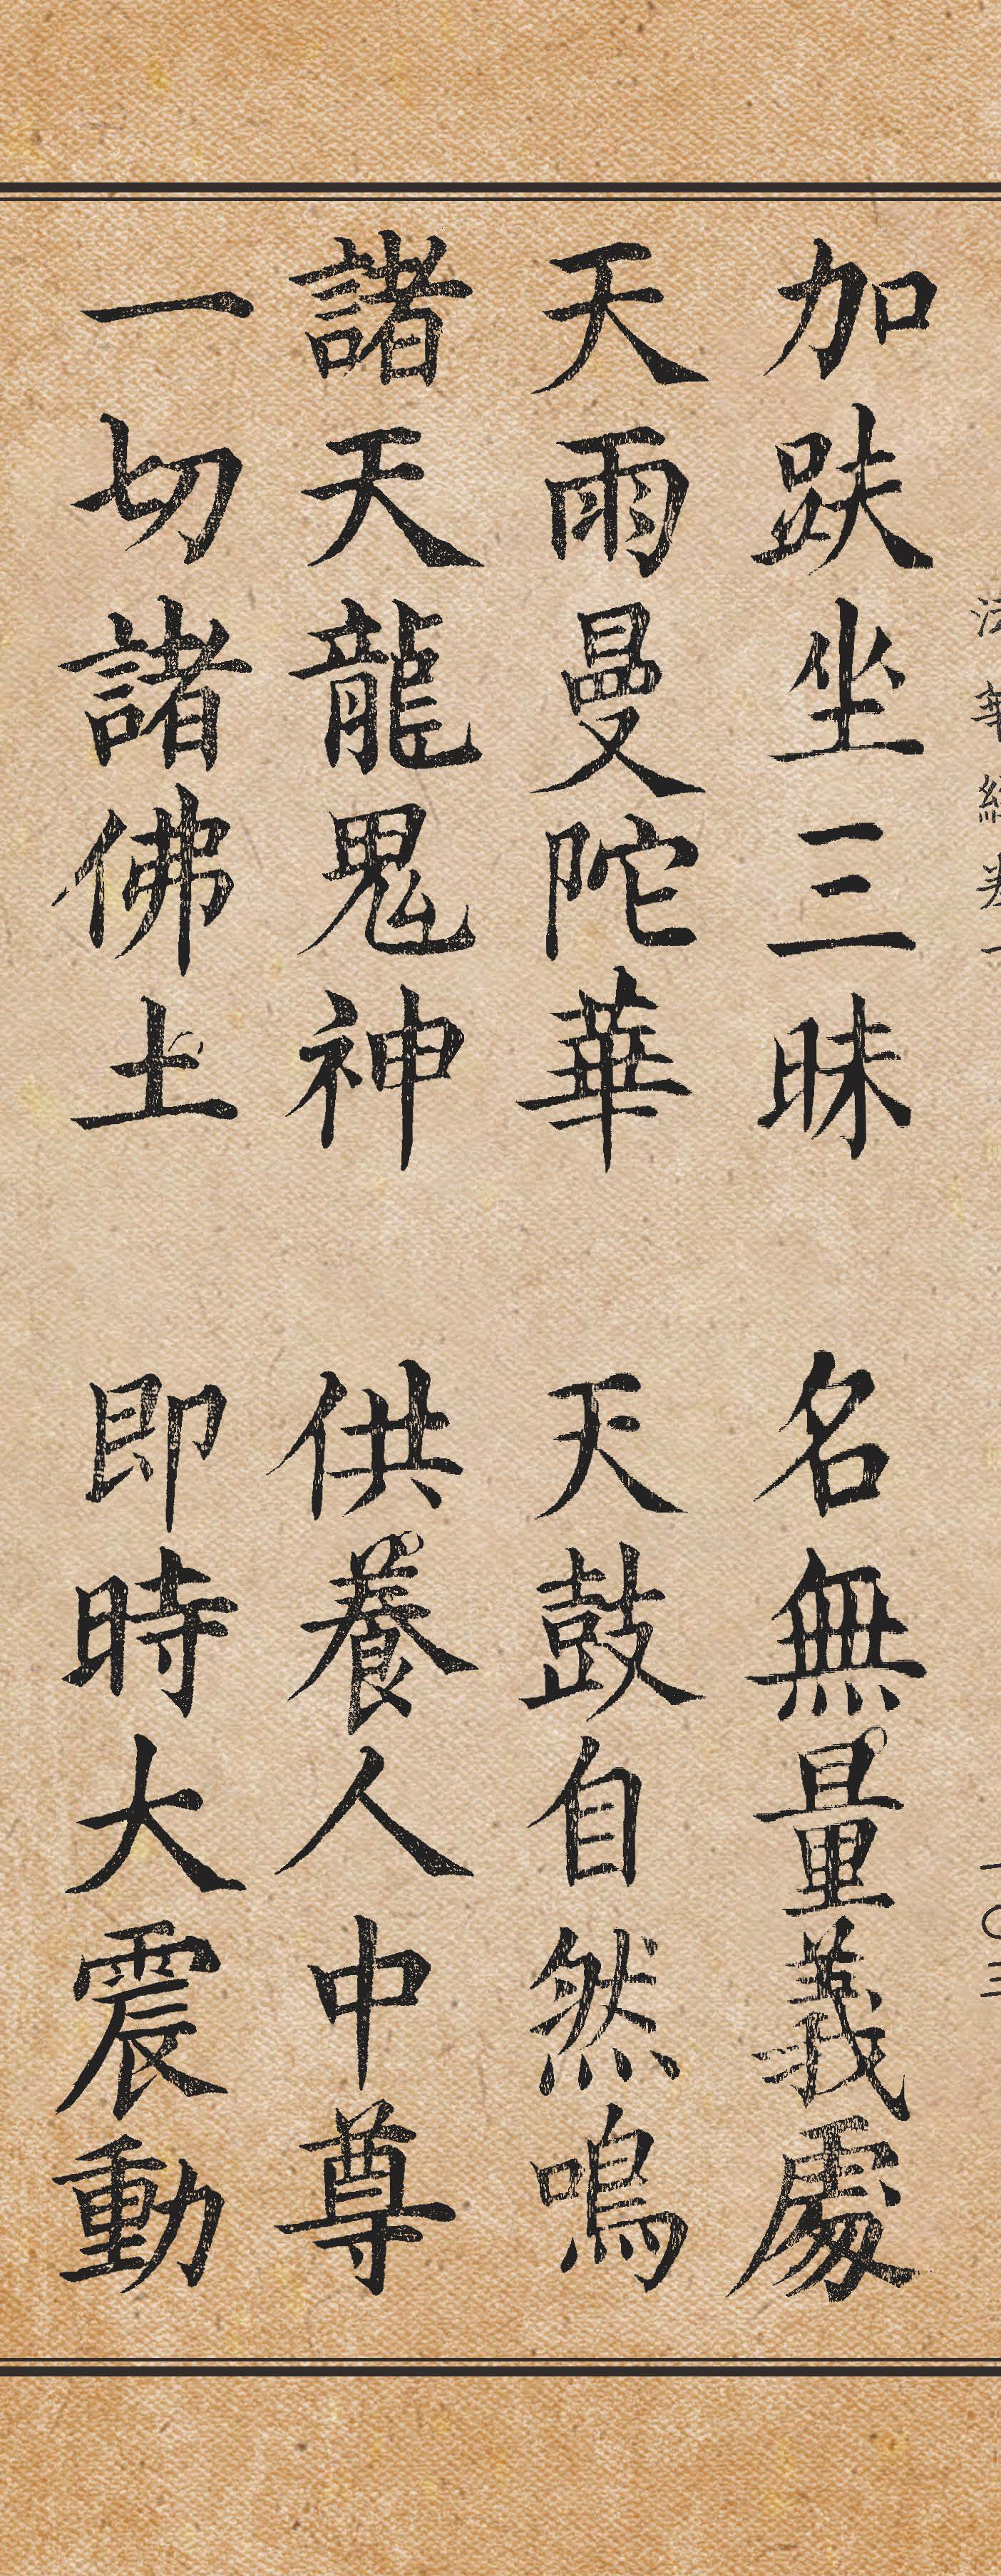 法華經卷一 一〇三
加趺坐三昧 名無量義處
天雨曼陀華 天鼓自然鳴
諸天龍鬼神 供養人中尊
一切諸佛土 即時大震動